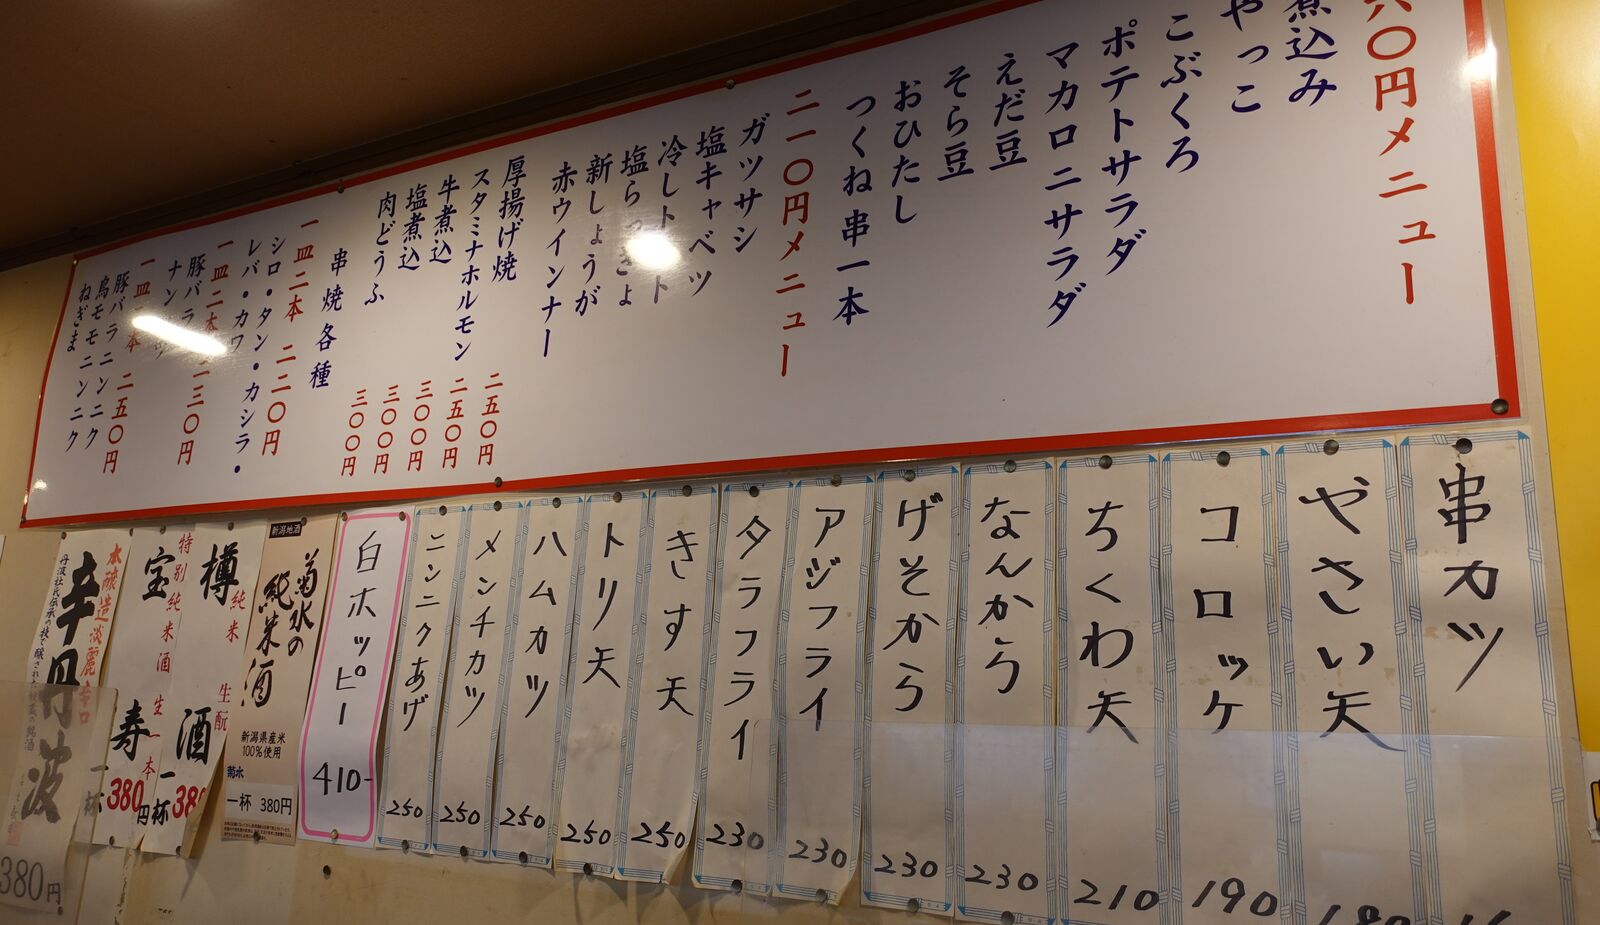 六〇円メニュー
煮込み
やっこ
こぶくろ
ポテトサラダ
マカロニサラダ
えだ豆
そら豆
おひたし
つくね串一本
二一〇円メニュー
ガツサシ
塩キャベツ
冷しトマト
塩らっきょ
新しょうが
赤ウインナー
厚揚げ焼 二五〇円
スタミナホルモン 二五〇円
牛煮込 三〇〇円
塩煮込 三〇〇円
肉どうふ 三〇〇円
串焼各種
一皿二本 二二〇円
シロ・タン・カシラ・
レバ・カワ
一皿二本 二三〇円
豚バラ
ナンコツ
一皿二本 二五〇円
豚バラニンニク
鳥モモニンニク
ねぎま
串カツ
やさい天 180
コロッケ 190
ちくわ天 210
なんから 230
げそから 230
アジフライ 230
タラフライ 230
きす天 250
トリ天 250
ハムカツ 250
メンチカツ 250
ニンニクあげ 250
白ホッピー 410-
新潟地酒
菊水の
純米酒
新潟県産米
100%使用
菊水
一杯 380円
純米 生酛
樽酒
一杯 380
特別純米酒 生一本
宝寿
一杯 380円
本醸造淡麗辛口
辛丹波
380円